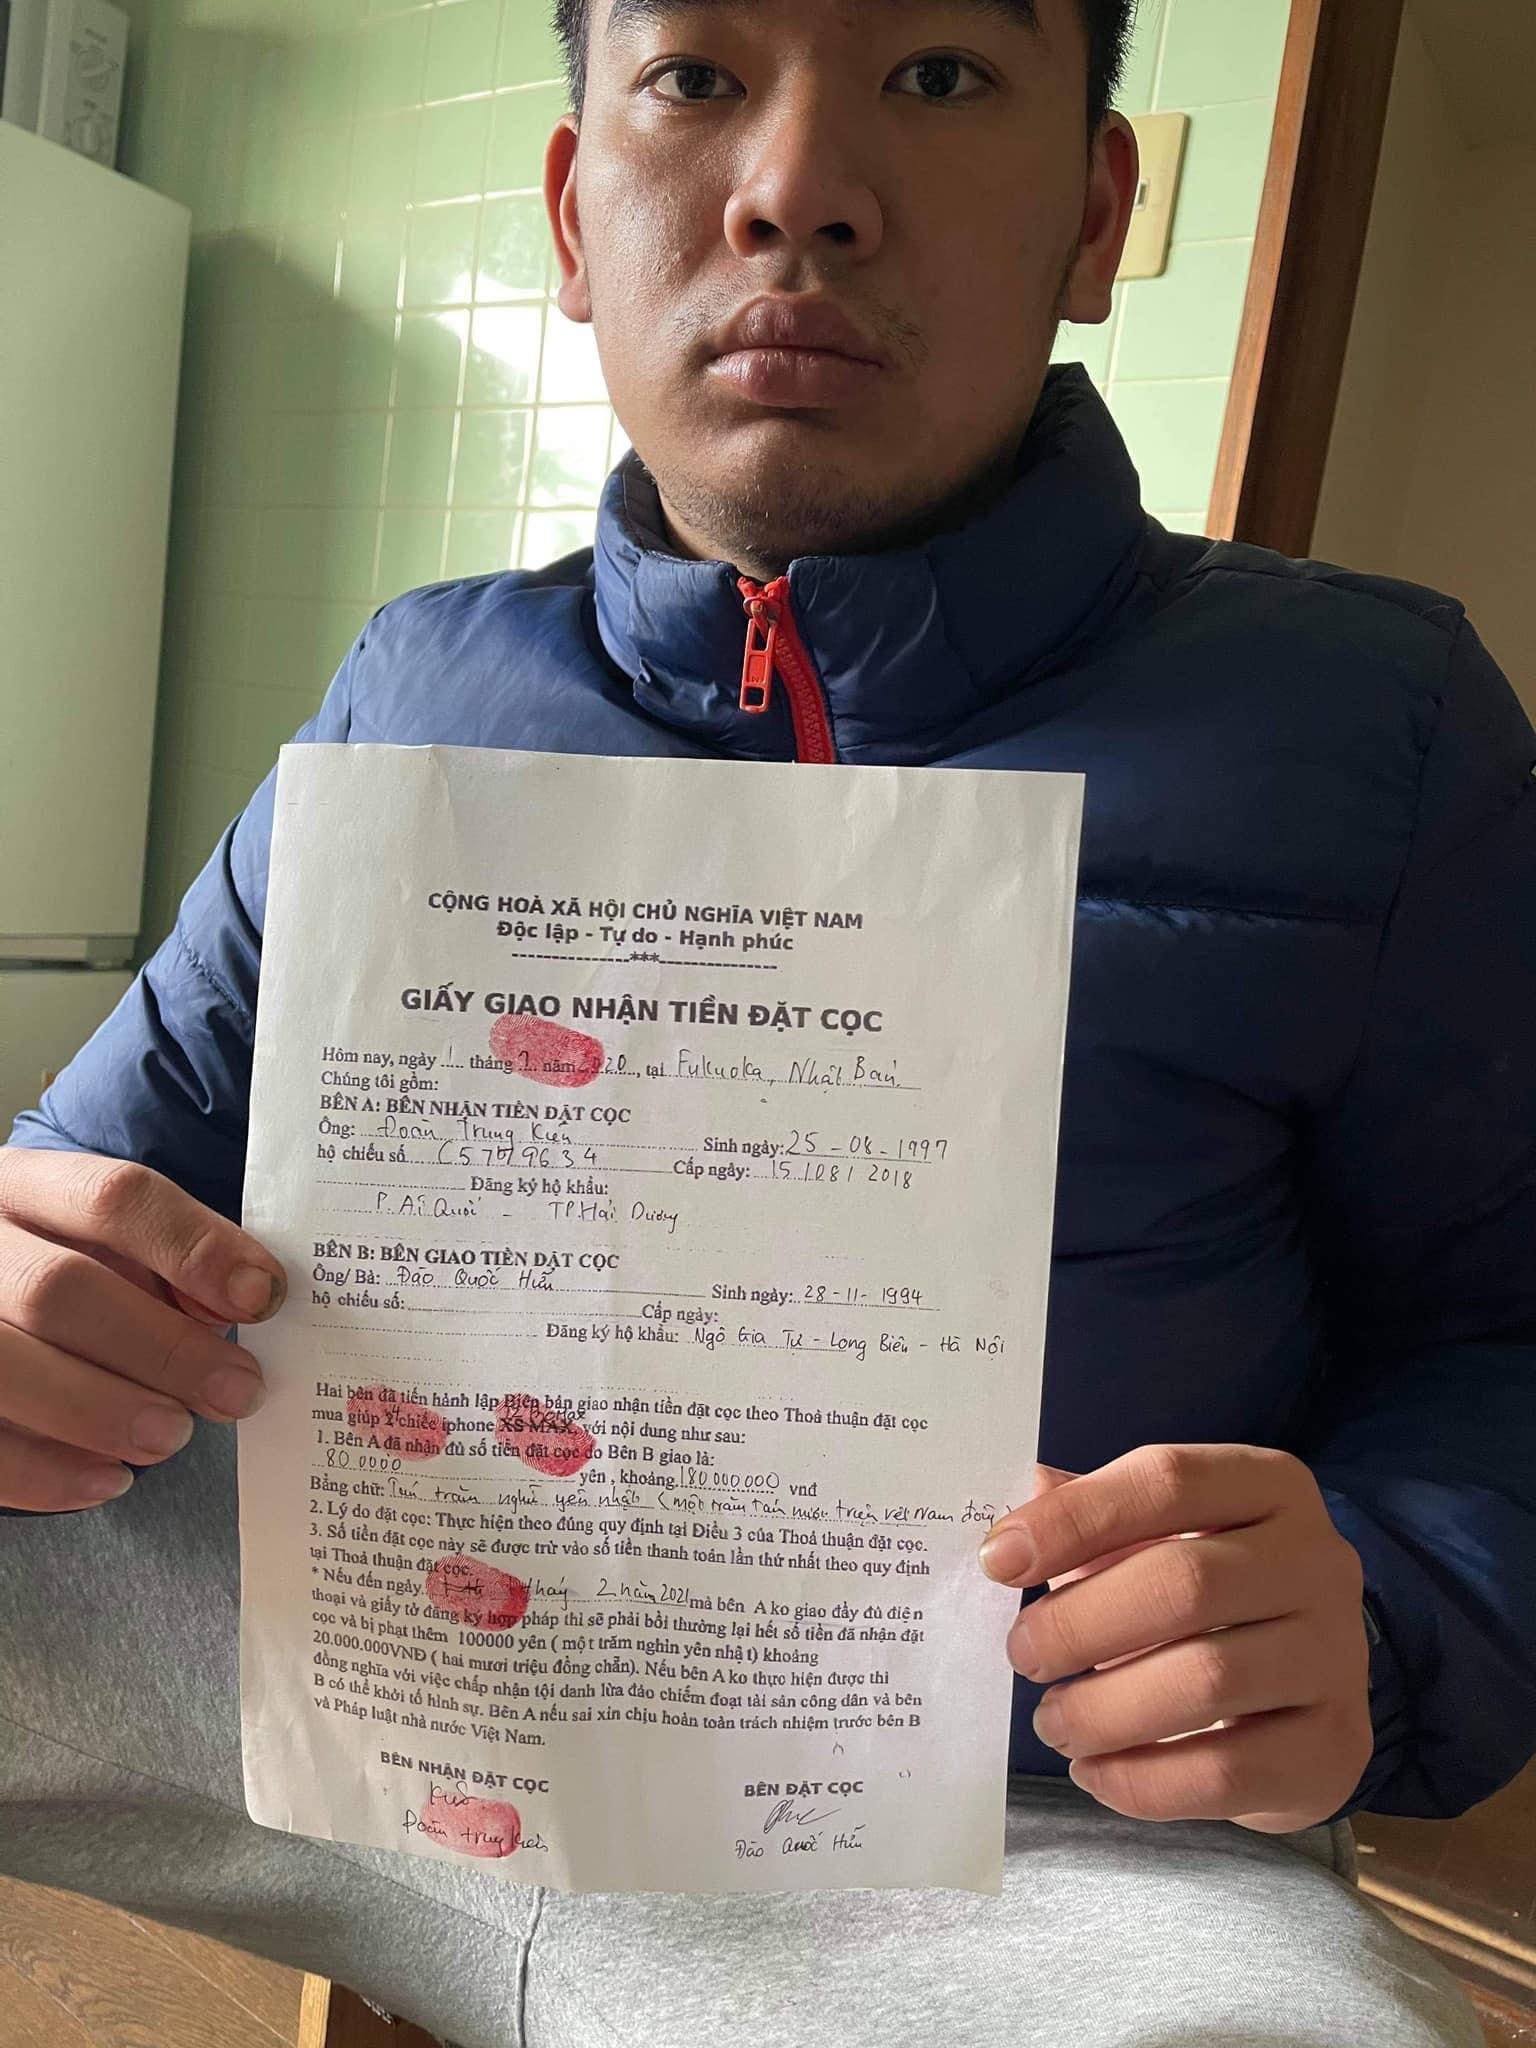 CỘNG HOÀ XÃ HỘI CHỦ NGHĨA VIỆT NAM
Độc lập - Tự do - Hạnh phúc
---------------***---------------
GIẤY GIAO NHẬN TIỀN ĐẶT CỌC
Hôm nay, ngày 1 tháng năm 2020, tại Fukuoka, Nhật Bản
Chúng tôi gồm:
BÊN A: BÊN NHẬN TIỀN ĐẶT CỌC
Ông: Đoàn Trung Kiên Sinh ngày: 25-08-1997
hộ chiếu số Cấp ngày: 15/08/2018
Đăng ký hộ khẩu:
P. Ái Quốc - TP. Hải Dương
BÊN B: BÊN GIAO TIỀN ĐẶT CỌC
Ông/ Bà: Đào Quốc Hiển Sinh ngày: 28-11-1994
hộ chiếu số: Cấp ngày:
Đăng ký hộ khẩu: Ngô Gia Tự - Long Biên - Hà Nội
Hai bên đã tiến hành lập Biên bản giao nhận tiền đặt cọc theo Thoả thuận đặt cọc
mua giúp 4 chiếc iphone XS MAX, với nội dung như sau:
1. Bên A đã nhận đủ số tiền đặt cọc do Bên B giao là:
800000 yên , khoảng 180 000 000 vnđ
Bằng chữ: Tám trăm nghìn yên nhật (một trăm tám mươi triệu việt nam đồng)
2. Lý do đặt cọc: Thực hiện theo đúng quy định tại Điều 3 của Thoả thuận đặt cọc.
3. Số tiền đặt cọc này sẽ được trừ vào số tiền thanh toán lần thứ nhất theo quy định
tại Thoả thuận đặt cọc.
* Nếu đến ngày tháng 2 năm 2021 mà bên A ko giao đầy đủ điện
thoại và giấy tờ đăng ký hợp pháp thì sẽ phải bồi thường lại hết số tiền đã nhận đặt
cọc và bị phạt thêm 100000 yên ( một trăm nghìn yên nhật) khoảng
20.000.000VNĐ ( hai mươi triệu đồng chẵn). Nếu bên A ko thực hiện được thì
đồng nghĩa với việc chấp nhận tội danh lừa đảo chiếm đoạt tài sản công dân và bên
B có thể khởi tố hình sự. Bên A nếu sai xin chịu hoàn toàn trách nhiệm trước bên B
và Pháp luật nhà nước Việt Nam.
BÊN NHẬN ĐẶT CỌC BÊN ĐẶT CỌC
Đoàn Trung Kiên Đào Quốc Hiển